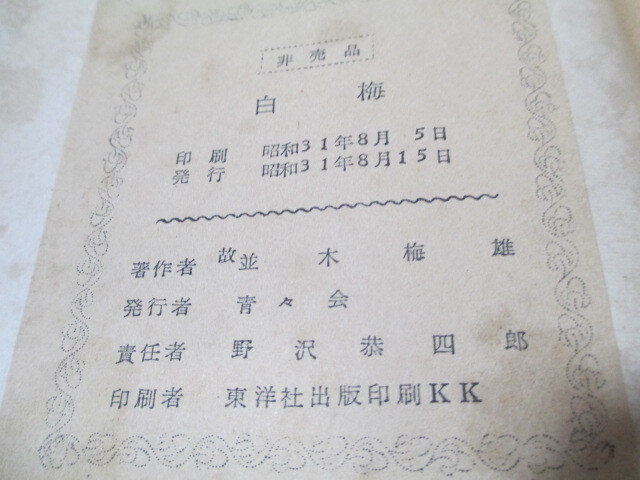 非売品
白梅
印刷 昭和31年8月 5日
発行 昭和31年8月15日
著作者 故並木梅雄
発行者 青々会
責任者 野沢恭四郎
印刷者 東洋社出版印刷KK